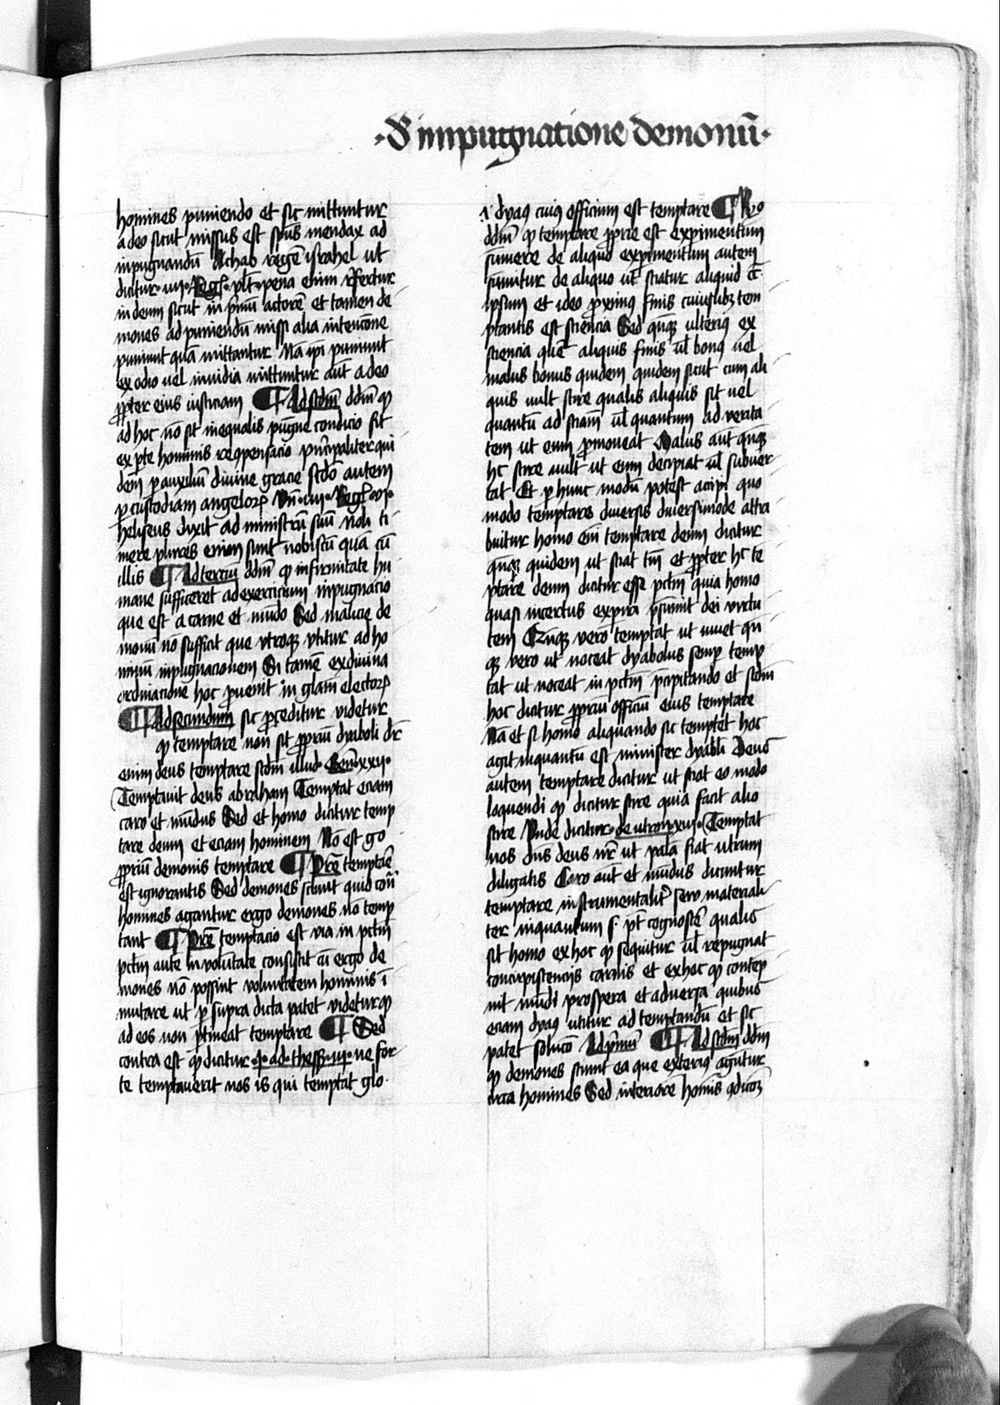 ·De impugnatione demonū·
homines puniendo et sic mittuntur
a deo sicut missus est sp̄us mendax ad
inpugnandū Achab regē israhel ut
dicitur ·iii· Reg̃· vlt̃· pena enim refertur
in deum sicut in p̄mū actorē et tamen de
mones ad puniendū missi alia intencōne
puniunt quā mittantur Nā ip̄i puniunt
ex odio uel inuidia mittuntur aūt a deo
ꝓpter eius iusticiam ¶ Ad scd̄m dd̄m ꝙ
ad hoc nō sit inequalis pugne condicio fit
ex ꝑte hominis recpensacio p̄ncipaliter qui
dem ꝑ auxiliū diuine gracie scd̄o autem
ꝑ custodiam angeloꝝ Vn̄ ·iiii· Reg̃· vi·
heliseus dixit ad ministrū suū noli ti
mere plures enim sunt nobiscū quā cū
illis ¶ Ad terciū dd̄m ꝙ infirmitate hu
mane sufficeret ad exercicium inpugnacio
que est a carne et mūdo Sed malicie de
monū nō sufficit que vtroqꝫ vtitur ad ho
minū inpugnacionem Si tamē ex diuina
ordinacione hoc ꝓuenit in gl̄am electoꝝ
¶ Ad secundum sic proceditur videtur
ꝙ temptare non sit ꝓpriū dyaboli dr̄
enim deus temptare scd̄m illud· Gen̄ xxii·
Temptauit deus abraham Temptat eciam
caro et mūdus Sed et homo dicitur temp
tare deum et eciam hominem Nō est go
ꝓpriū demonis temptare ¶ Pret̄ temptar̄e
est ignorantis Sed demones sciunt quid cōn̄
homines agantur ergo demones nō temp
tant ¶ Pret̄ temptacio est via in pctm̄
pctm̄ aute in volūtate consistit cū ergo de
mones nō possint voluntatem hominis ī
mutare ut ꝑ supra dicta patet videtur ꝙ
ad eos non ꝑtineat temptare ¶ Sed
contra est ꝙ dicitur ·i· ad· thess̄· iii· ne for
te temptauerit nos is qui temptat glo·
dyaꝯ cuiꝯ officium est temptare ¶ Rn̄o
dd̄m ꝙ temptare ꝓprie est experimentum
sumere de aliquo experimentum autem
sumitur de aliquo ut sciatur aliquid c̄
ipsum et ideo ꝓximꝯ finis cuiuslibꝫ tem
ptantis est sciencia Sed qn̄qꝫ ulteriꝯ ex
sciencia querit̄ aliquis finis ul̄ bonꝯ uel
malus bonus quidem quidem sicut cum ali
quis uult scire qualis aliquis sit uel
quantū ad sciam̄ ul̄ quantum ad verita
tem ut eum ꝓmoueat Malus aūt qn̄qꝫ
hc̄ scire uult ut eum decipiat ul̄ subuer
tat Et ꝑ hunc modū potest acipi quo
modo temptare diuersis diuersimode attri
buitur homo em̄ temptare deum dicitur
qn̄qꝫ quidem ut sciat tm̄ et ꝓpter hc̄ te
ptare deum dicitur esse pctm̄ quia homo
quasi incertus expiri p̄sumit dei virtu
tem Qn̄qꝫ vero temptat ut iuuet qn̄
qꝫ vero ut noceat dyabolus semꝑ temp
tat ut noceat in pctm̄ p̄cipitando et scd̄m
hoc dicitur ꝓpriū officiū eius temptare
Nā et si homo aliquando sic temptet hoc
agit inquantū est minister dyabli Deus
autem temptare dicitur ut sciat eo modo
loquendi ꝙ dicitur scire quia facit alio
scire Vnde dicitur· deutron xiii· Temptat
uos dn̄s deus ur̄ ut palā fiat utrum
diligatis Caro aūt et mūdus dicuntur
temptare instrumentalit̄ seu materiali
ter inquantum s· pt̄ cognosci qualis
sit homo ex hoc ꝙ sequitur ul̄ repugnat
concupiscenciis carnis et ex hoc ꝙ contēp
nit mūdi prospera et aduersa quibus
eciam dyaꝯ utitur ad temptandū et sic
patet solucō Ad p̄mū ¶ Ad scd̄m dd̄m
ꝙ demones sciunt ea que exteriꝯ agūtur
circa homines Sed interiorē homīs 9dicōꝫ